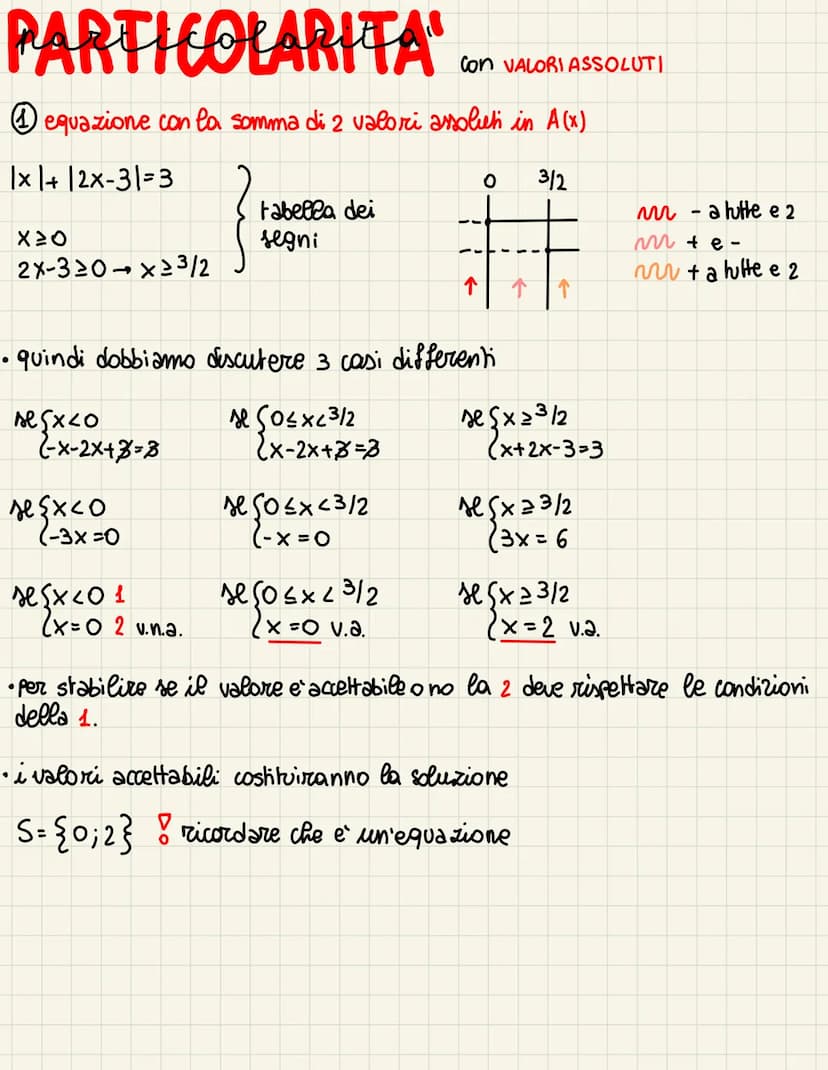 PARTICOLARITA'
particolarita'
con VALORI ASSOLUTI
① equazione con la somma di 2 valori assoluti in A(x)
|x|+|2x-3|=3
x≥0
2x-3≥0→x≥3/2
tabella dei
segni
0 3/2
- a tutte e 2
+ e -
+ a tutte e 2
• quindi dobbiamo discutere 3 casi differenti
se {x<0 se {0≤x<3/2 se {x≥3/2
{-x-2x+3=3 {x-2x+3=3 {x+2x-3=3
se {x<0 se {0≤x<3/2 se {x≥3/2
{-3x=0 {-x=0 {3x=6
se {x<0 1 se {0≤x<3/2 se {x≥3/2
{x=0 2 v.n.a. {x=0 v.a. {x=2 v.a.
• per stabilire se il valore e' accettabile o no la 2 deve rispettare le condizioni
della 1.
• i valori accettabili costituiranno la soluzione
S={0;2} ! ricordare che e' un'equazione